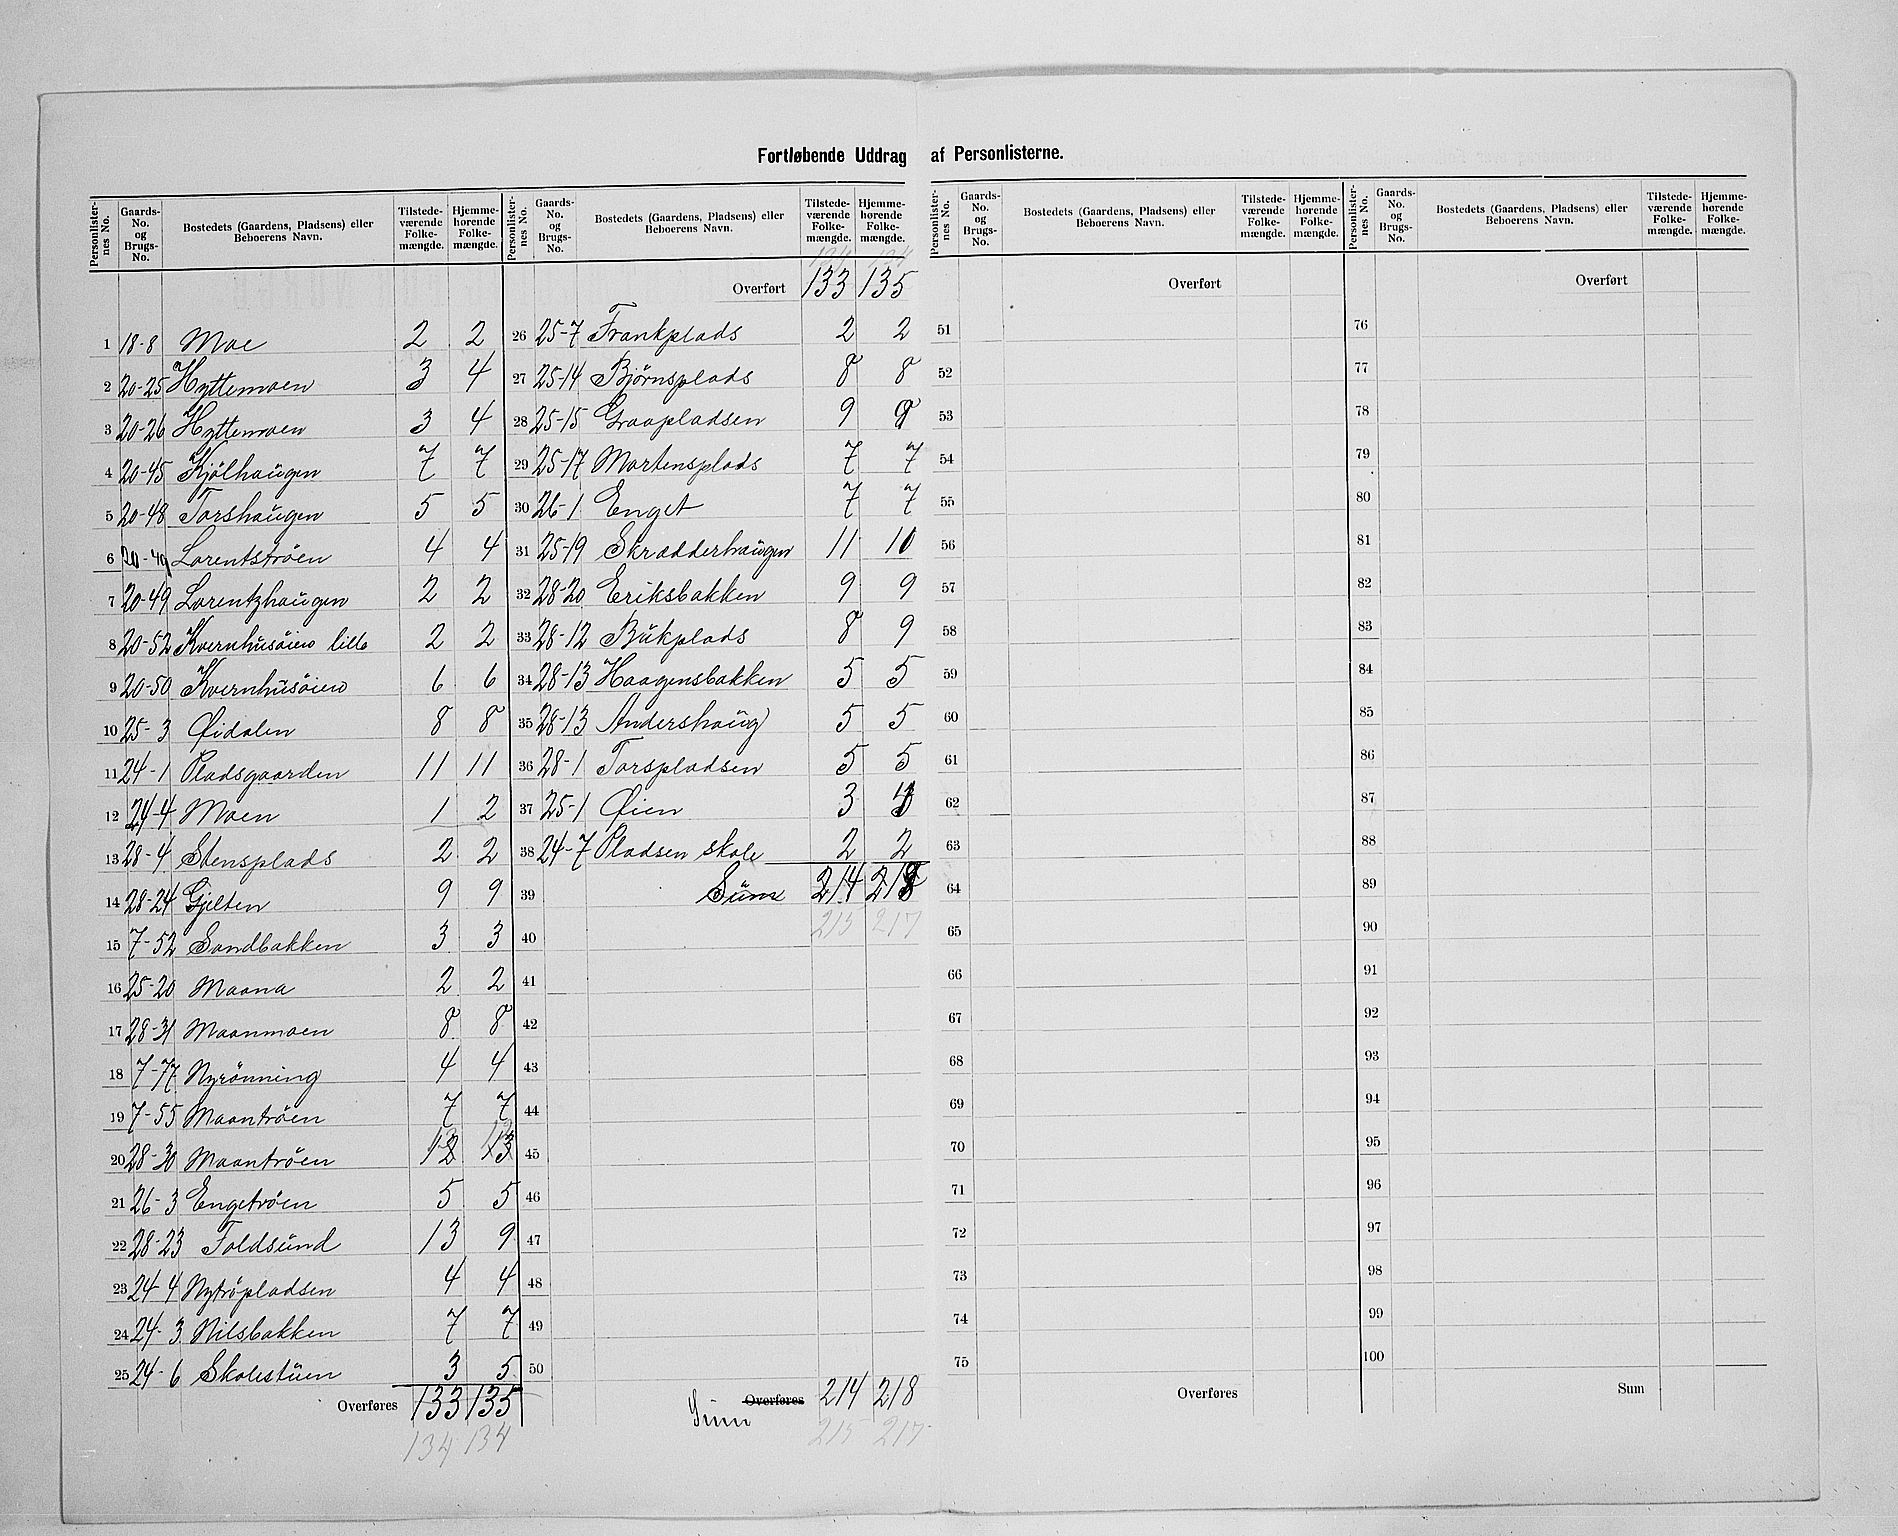 Fortløbende Uddrag af Personlisterne.
Personlister-nes No. Gaards-No. og Brugs-No. Bostedets (Gaardens, Pladsens) eller Beboerens Navn. Tilstede-værende Folke-mængde. Hjemme-hørende Folke-mængde.
1 18-8 Moe 2 2
2 20-25 Hyttemoen 3 4
3 20-26 Hyttemoen 3 4
4 20-45 Kjølhaugen 7 7
5 20-48 Torshaugen 5 5
6 20-49 Lorentströen 4 4
7 20-49 Lorentzhaugen 2 2
8 20-52 Kvernhusöien lille 2 2
9 20-50 Kvernhusöien 6 6
10 25-3 Øidalen 8 8
11 24-1 Pladsgaarden 11 11
12 24-4 Moen 1 2
13 28-4 Stensplads 2 2
14 28-24 Gjelten 9 9
15 7-52 Sandbakken 3 3
16 25-20 Maana 2 2
17 28-31 Maanmoen 8 8
18 7-77 Nyrönning 4 4
19 7-55 Maantröen 7 7
20 28-30 Maantröen 12 13
21 26-3 Engetröen 5 5
22 28-23 Foldsund 13 9
23 24-4 Nytröpladsen 4 4
24 24-3 Nilsbakken 7 7
25 24-6 Skolestuen 3 5
Overføres 133 135
134 134
Personlister-nes No. Gaards-No. og Brugs-No. Bostedets (Gaardens, Pladsens) eller Beboerens Navn. Tilstede-værende Folke-mængde. Hjemme-hørende Folke-mængde.
134 134
Overført 133 135
26 25-7 Frankplads 2 2
27 25-14 Bjørnsplads 8 8
28 25-15 Graapladsen 9 9
29 25-17 Martensplads 7 7
30 26-1 Enget 7 7
31 25-19 Skrædderhaugen 11 10
32 28-20 Eriksbakken 9 9
33 28-12 Bukplads 8 9
34 28-13 Haagensbakken 5 5
35 28-13 Andershaug 5 5
36 28-1 Torspladsen 5 5
37 25-1 Øien 3
38 24-7 Pladsen skole 2 2
39 Sum 214 218
40 215 217
41
42
43
44
45
46
47
48
49
50
Overføres Sum 214 218
215 217
Personlister-nes No. Gaards-No. og Brugs-No. Bostedets (Gaardens, Pladsens) eller Beboerens Navn. Tilstede-værende Folke-mængde. Hjemme-hørende Folke-mængde.
Overført
51
52
53
54
55
56
57
58
59
60
61
62
63
64
65
66
67
68
69
70
71
72
73
74
75
Overføres
Personlister-nes No. Gaards-No. og Brugs-No. Bostedets (Gaardens, Pladsens) eller Beboerens Navn. Tilstede-værende Folke-mængde. Hjemme-hørende Folke-mængde.
Overført
76
77
78
79
80
81
82
83
84
85
86
87
88
89
90
91
92
93
94
95
96
97
98
99
100
Sum